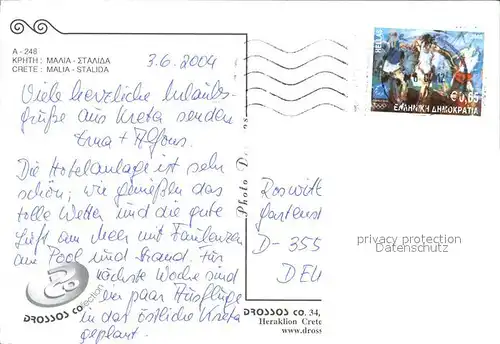 A - 248
ΚΡΗΤΗ : ΜΑΛΙΑ - ΣΤΑΛΙΔΑ
CRETE : MALIA - STALIDA
3.6.2004
Viele herzliche Urlaubs-
grüße aus Kreta senden
Erna + Alfons.
Die Hotelanlage ist sehr
schön; wir genießen das
tolle Wetter und die gute
Luft am Meer mit Faulenzen
am Pool und Strand. Für
nächste Woche sind
ein paar Ausflüge
in das östliche Kreta
geplant.
DROSSOS collection
Photo
HELLAS
€ 0,65
ΕΛΛΗΝΙΚΗ ΔΗΜΟΚΡΑΤΙΑ
Roswit
Gartenst
D-355
DEU
privacy protection
Datenschutz
DROSSOS CO. 34,
Heraklion Crete
www.dross